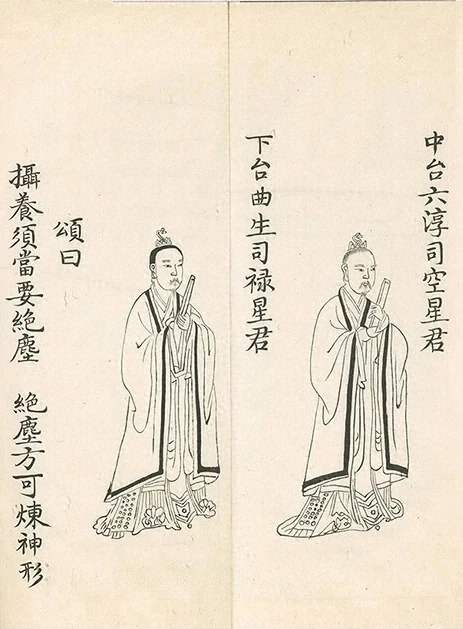 中台六淳司空星君
下台曲生司禄星君
頌曰
攝養須當要絕塵　絕塵方可煉神形